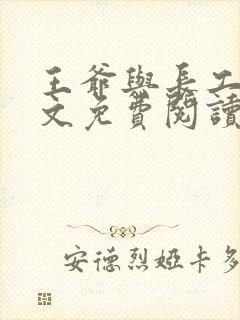 王爺與長工
文免費閱讀
安德烈婭卡多